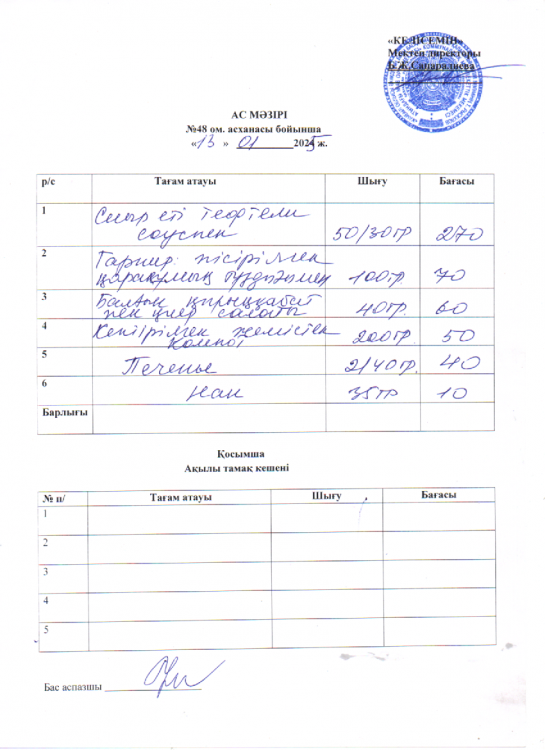 «КЕЛІСЕМІН»
Мектеп директоры
Б.Ж.Сапаралиева
АС МӘЗІРІ
№48 ом. асханасы бойынша
«13» 01 2025 ж.
р/с Тағам атауы Шығу Бағасы
1 Сиыр еті тефтели
соуспен 50/30гр 270
2 Гарнир: пісірілген
қарақұмық 100гр 70
3 Балғын қырыққабат
пен қияр салаты 40гр. 60
4 Кептірілген жемістен
компот 200гр 50
5 Печенье 2/40гр. 40
6 Нан 35гр 10
Барлығы
Қосымша
Ақылы тамақ кешені
№ п/ Тағам атауы Шығу Бағасы
1
2
3
4
5
Бас аспазшы